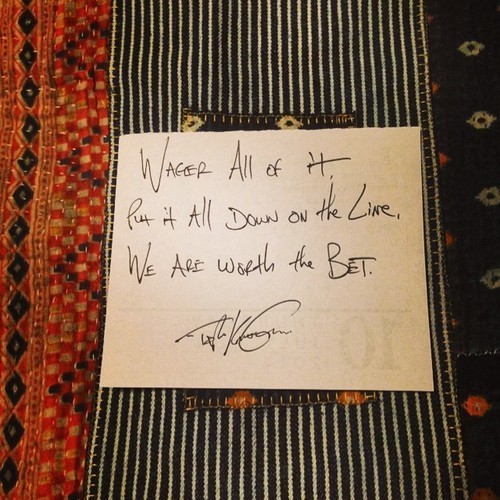 Wager All of it,
Put it All Down on the Line,
We Are worth the Bet.